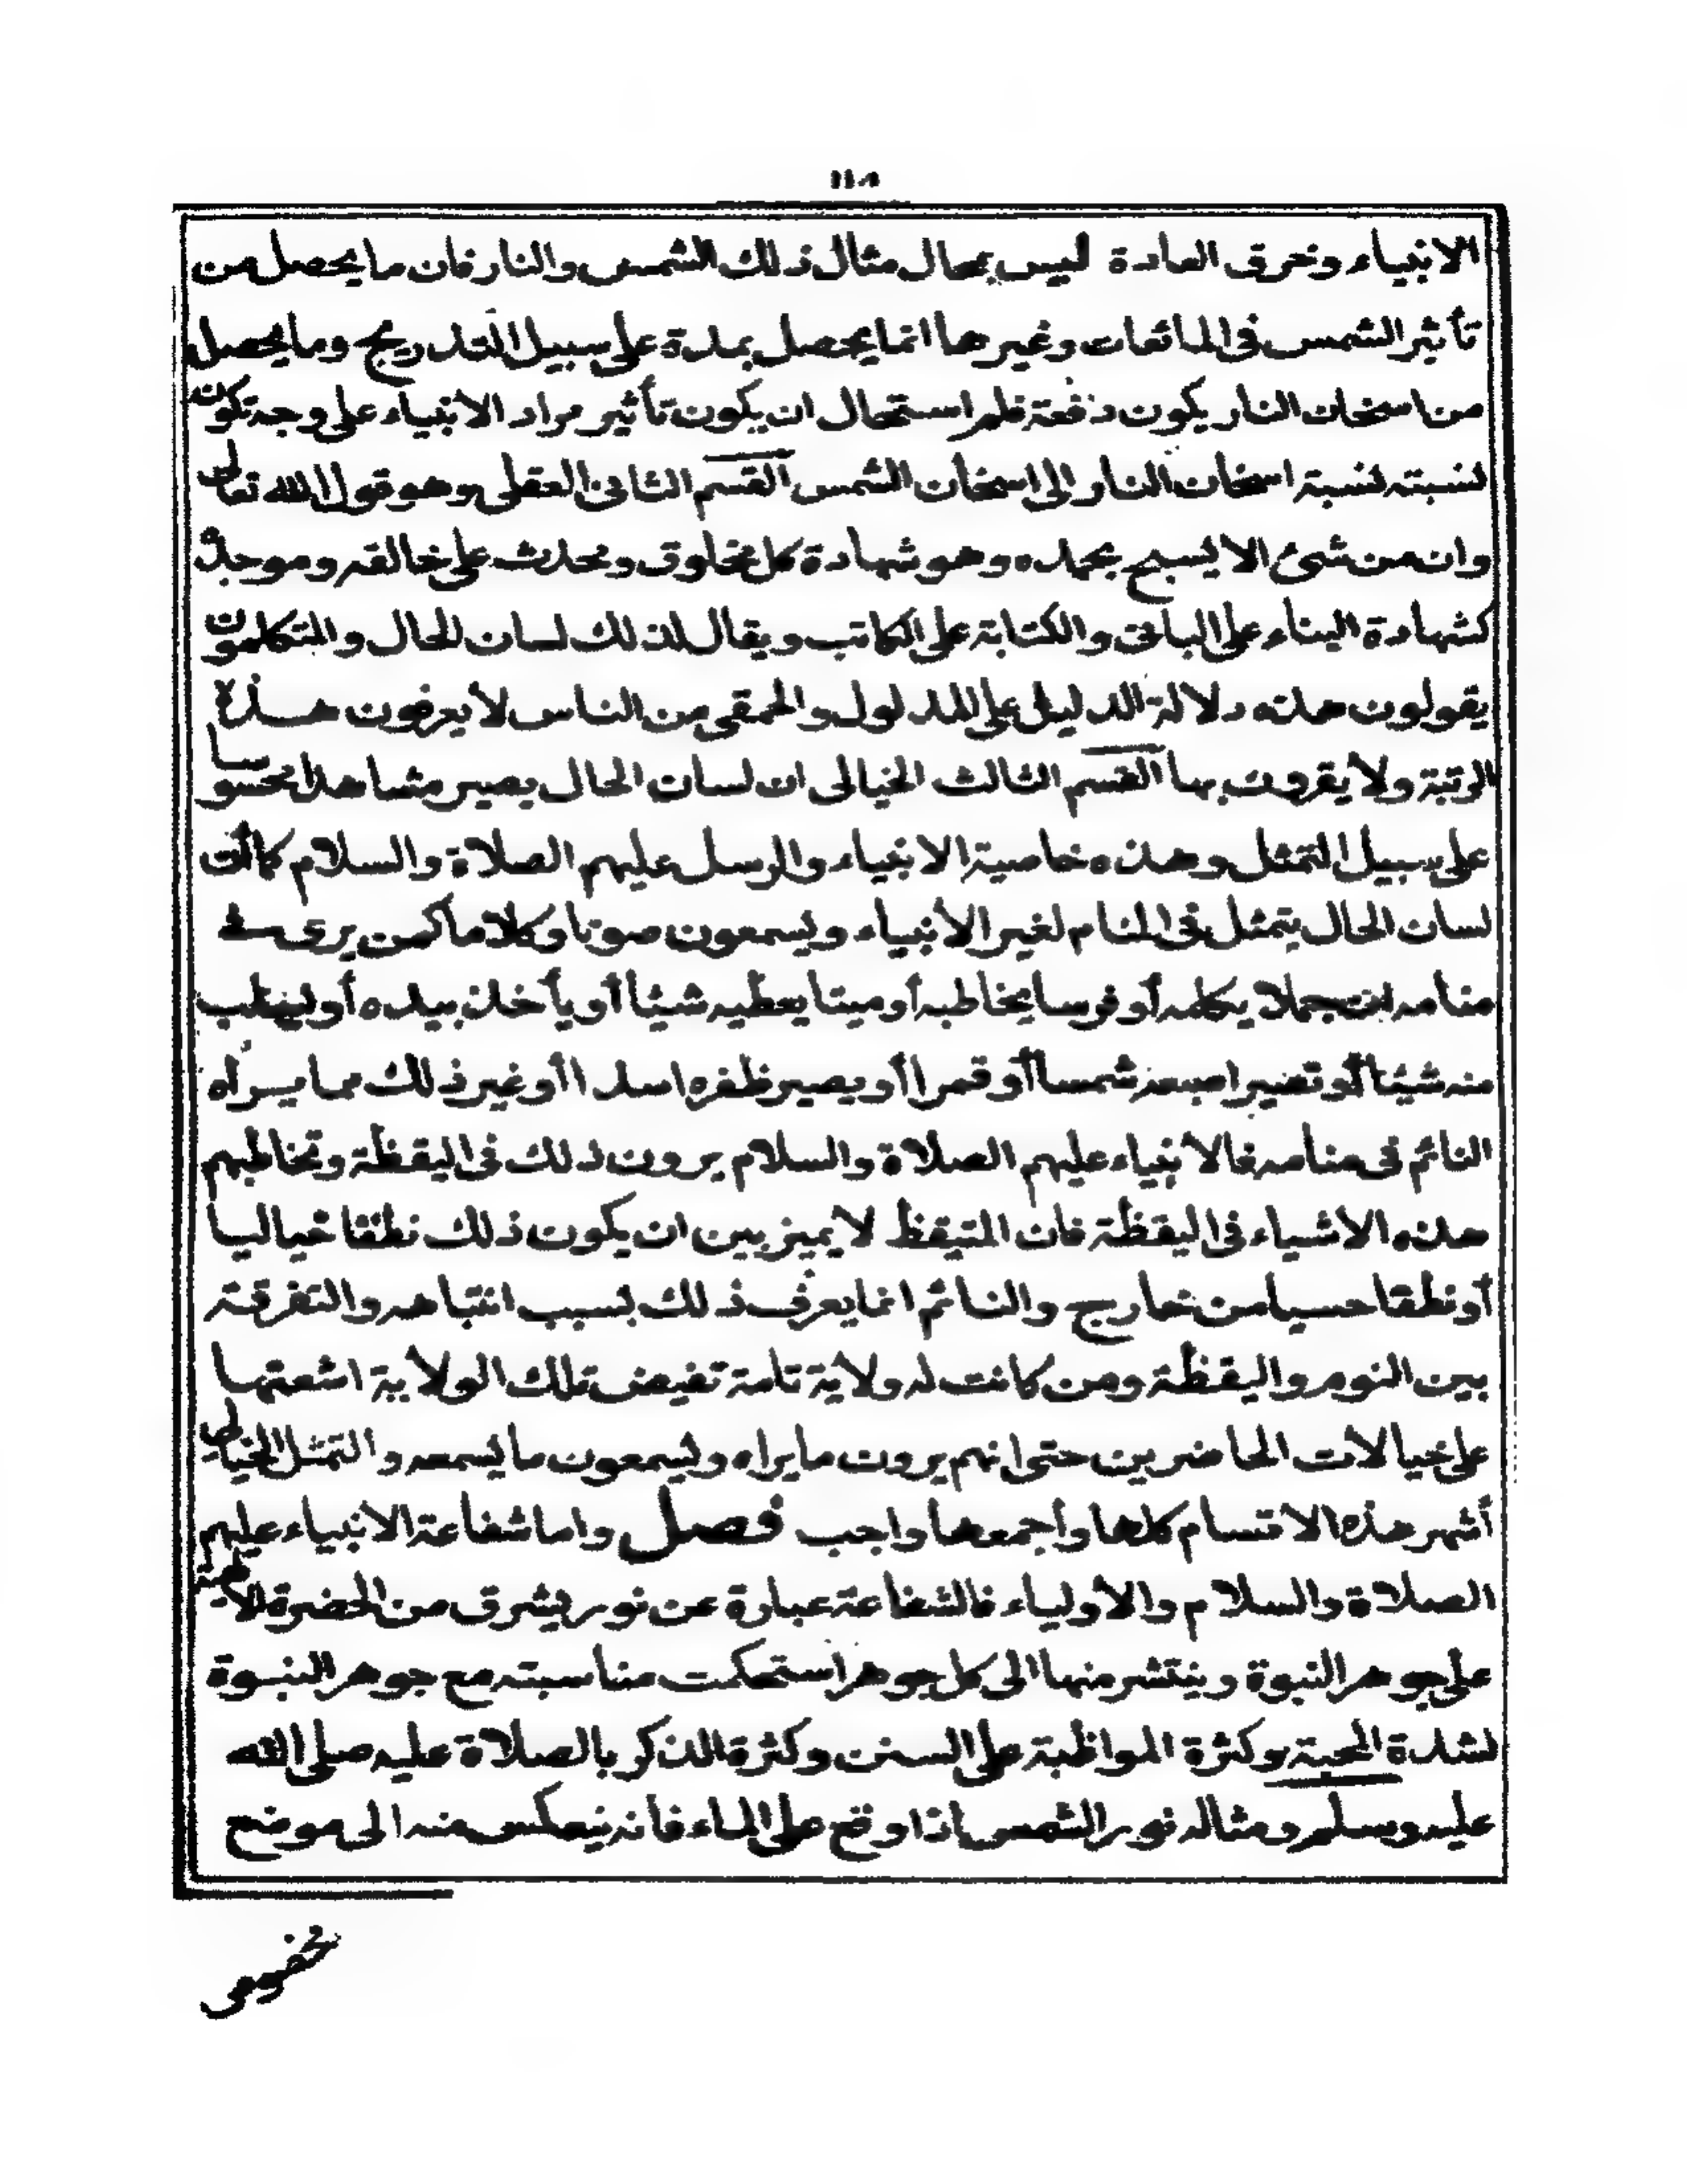 الانبياء وخرق العادة ليس بمحال مثال ذلك الشمس والنار فان ما يحصل من
تأثير الشمس فى المائعات وغيرها انما يحصل بمدة على سبيل التدريج وما يحصل
من اسخان النار يكون دفعة فلم استحال ان يكون تأثير مراد الانبياء على وجه تكون
نسبته نسبة اسخان النار الى اسخان الشمس القسم الثانى العقلى وهو قول الله تعالى
وان من شئ الا يسبح بحمده وهو شهادة كل مخلوق ومحدث على خالقه وموجده
كشهادة البناء على البانى والكتابة على الكاتب ويقال لذلك لسان الحال والمتكلمون
يقولون هذه دلالة الدليل على المدلول والحمقى من الناس لا يعرفون هذه
الرتبة ولا يقرون بها القسم الثالث الخيالى ان لسان الحال يصير مشاهدا محسوسا
على سبيل التمثل وهذه خاصية الانبياء والرسل عليهم الصلاة والسلام كما أن
لسان الحال يتمثل فى المنام لغير الأنبياء ويسمعون صوتا وكلاما كمن يرى فى
منامه ان جملا يكلمه أو فرسا يخاطبه أو ميتا يعطيه شيئا أو يأخذ بيده أو ليطلب
منه شيئا أو تصير اصبعه شمسا أو قمرا أو يصير ظفره اسدا أو غير ذلك مما يراه
النائم فى منامه فالأنبياء عليهم الصلاة والسلام يرون ذلك فى اليقظة وتخاطبهم
هذه الاشياء فى اليقظة فان المتيقظ لا يميز بين ان يكون ذلك نطقا خياليا
أو نطقا حسيا من خارج والنائم انما يعرف ذلك بسبب انتباهه والتفرقة
بين النوم واليقظة ومن كانت له ولاية تامة تفيض تلك الولاية اشعتها
على خيالات الحاضرين حتى انهم يرون ما يراه ويسمعون ما يسمعه والتمثل الخيالى
أشهر هذه الاقسام كلها وأجمعها واجب فصل واما شفاعة الانبياء عليهم
الصلاة والسلام والأولياء فالشفاعة عبارة عن نور يشرق من الحضرة الالهية
على جوهر النبوة وينتشر منها الى كل جوهر استحكمت مناسبته مع جوهر النبوة
لشدة المحبة وكثرة المواظبة على السنن وكثرة الذكر بالصلاة عليه صلى الله
عليه وسلم ومثاله نور الشمس اذا وقع على الماء فانه ينعكس منه الى موضع